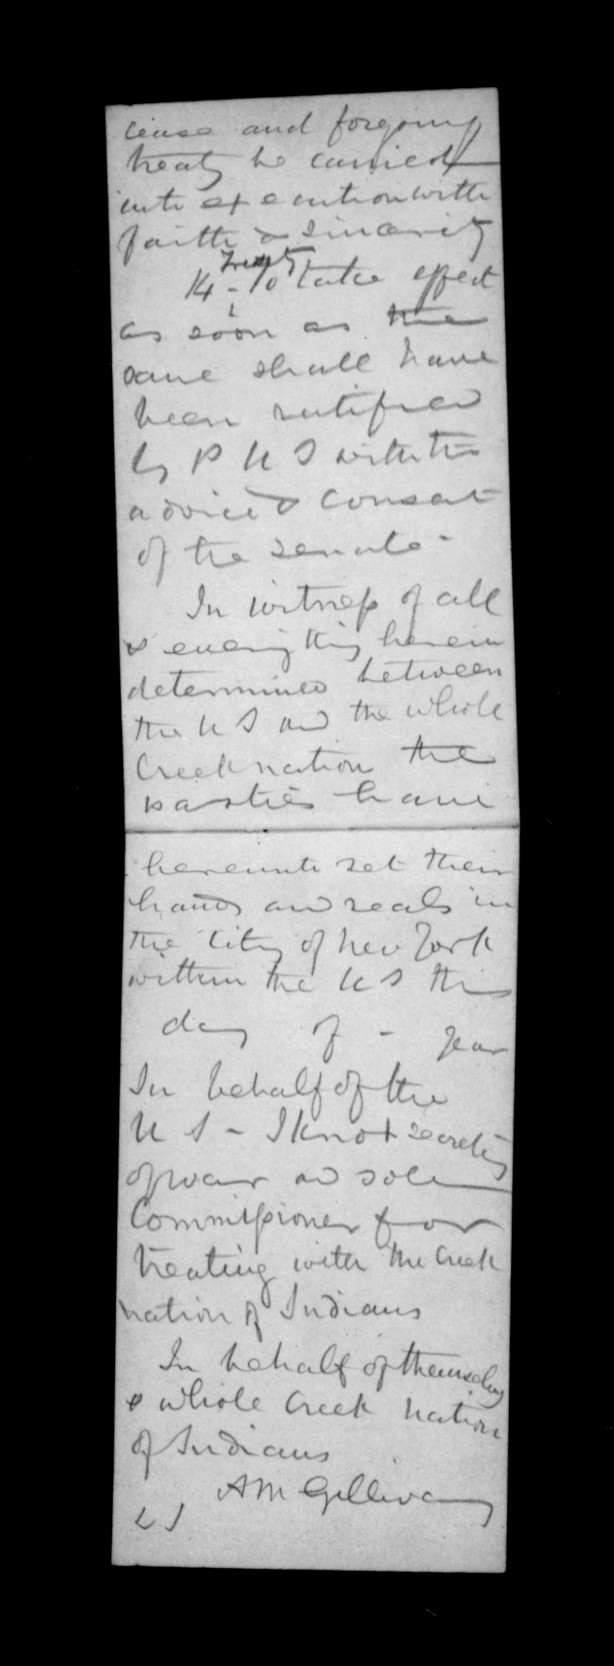 cease and foregoing
treaty be carried
into execution with
faith & sincerity
Treaty
14 - To take effect
as soon as the
same shall have
been ratified
by P U S with the
advice & consent
of the senate -
In witness of all
& every thing herein
determined between
the U S and the whole
Creek nation the
parties have
hereunto set their
hands and seals in
the city of New York
within the U S this
day of - year
In behalf of the
U S - J Knox secretary
of war and sole
Commissioner for
treating with the Creek
nation of Indians
In behalf of themselves
& whole Creek nation
of Indians
A McGillivray
L S